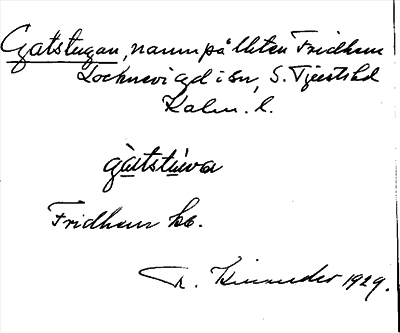 Gatstugan, namn på lht en Fridhem
Locknevi gd i sn, S. Tjust hd
Kalm. l.
gàtstùwa
Fridhem lht.
1929.